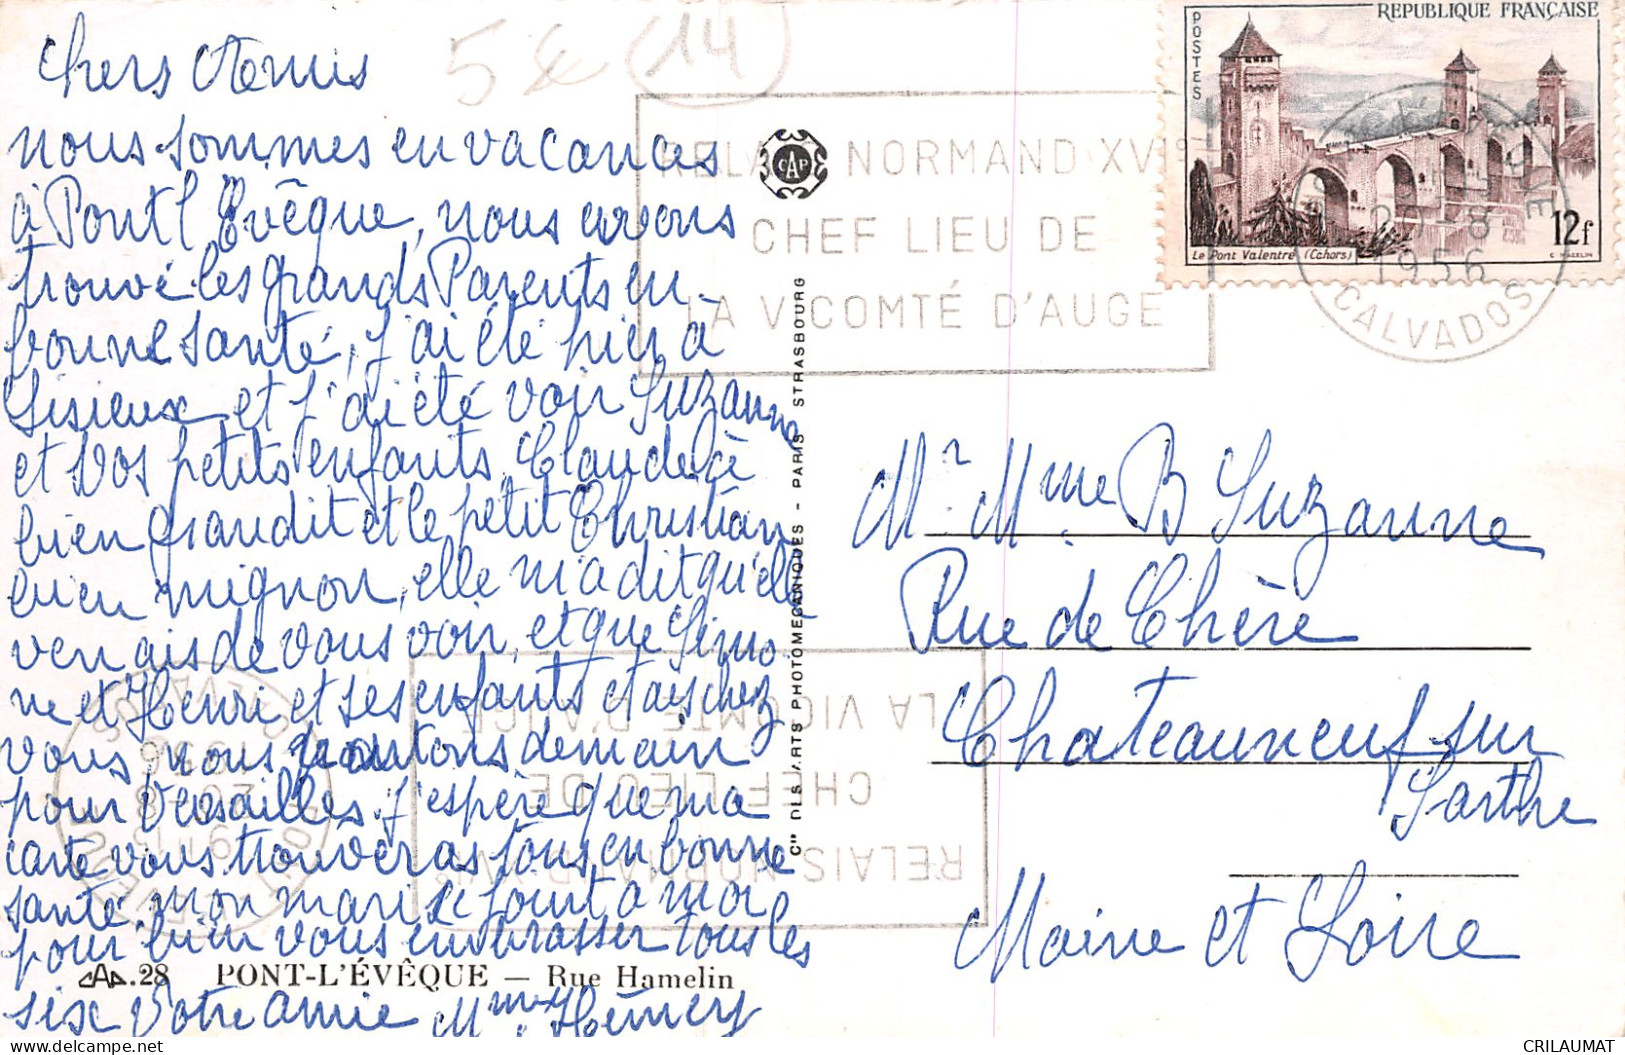 Chers Amis
nous sommes en vacances
à Pont l'Evêque, nous avons
trouvé les grands Parents en
bonne santé, j'ai été hier à
Lisieux et j'ai été voir Suzanne
et vos petits enfants, Claude à
bien grandit et le petit Christian
bien mignon, elle m'a dit qu'elle
venais de vous voir, et que Simo
ne et Henri et ses enfants étais chez
vous, nous partons demain
pour Versailles. j'espère que ma
carte vous trouveras tous en bonne
santé mon mari se joint a moi
pour bien vous embrasser tous les
six Votre amie Mme Hémery
5€
14
RELAIS NORMAND XVIe
CHEF LIEU DE
LA VICOMTÉ D'AUGE
CAP
REPUBLIQUE FRANÇAISE
POSTES
Le Pont Valentré (Cahors)
12f
C. MAZELIN
20 8
1956
CALVADOS
Cie DES ARTS PHOTOMECANIQUES - PARIS - STRASBOURG
Mr. Mme B Suzanne
Rue de Chère
Chateauneuf sur
Sarthe
Maine et Loire
RELAIS NORMAND XVIe
CHEF LIEU DE
LA VICOMTÉ D'AUGE
CAP.28 PONT-L'ÉVÊQUE — Rue Hamelin
CRILAUMAT